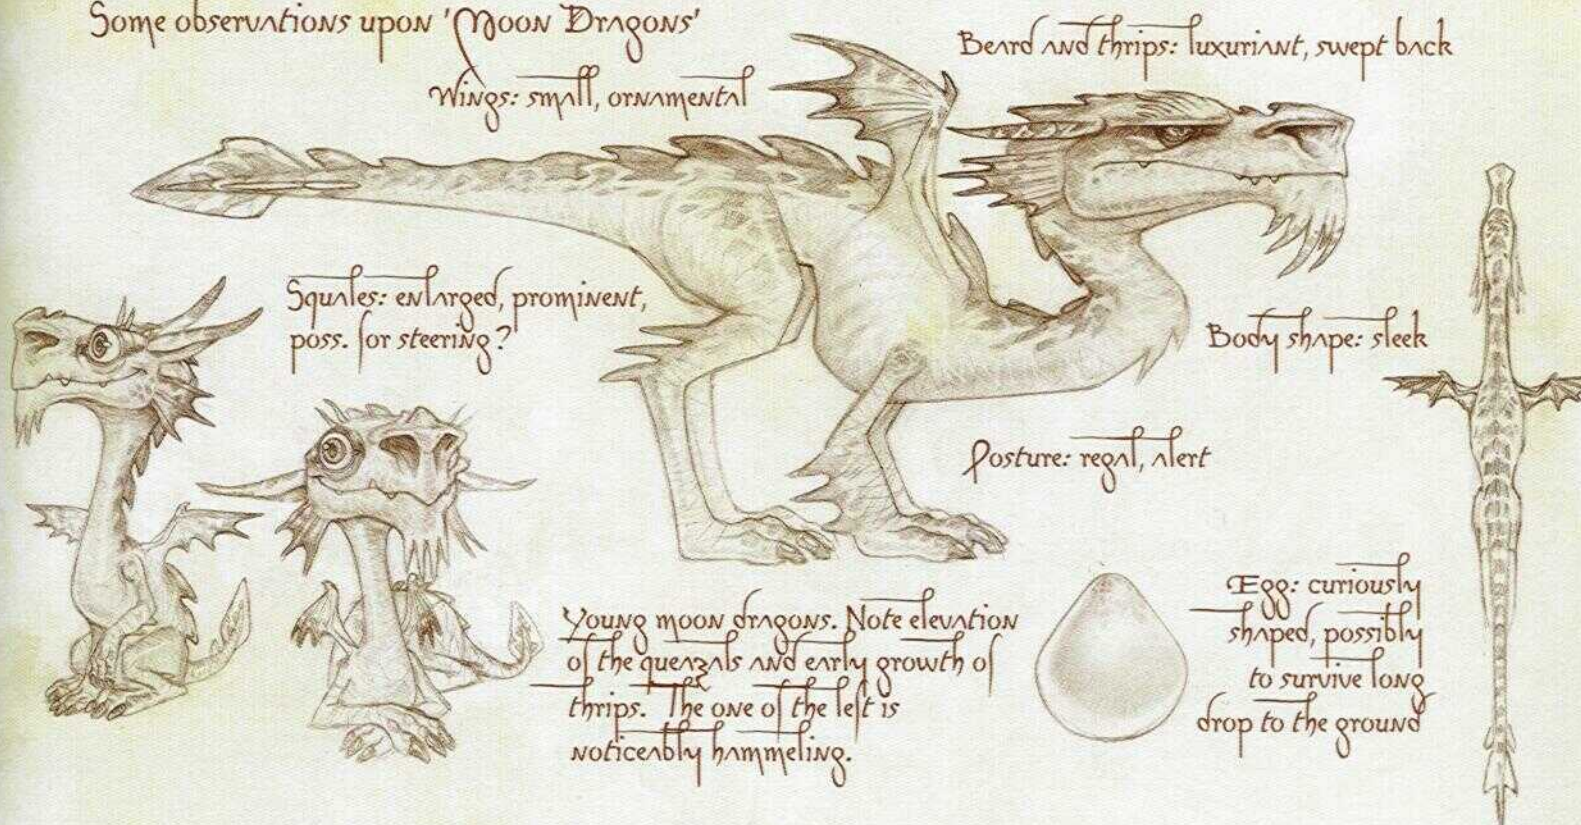 Some observations upon 'Moon Dragons'
Wings: small, ornamental
Beard and thrips: luxuriant, swept back
Squales: enlarged, prominent,
poss. for steering?
Body shape: sleek
Posture: regal, alert
Young moon dragons. Note elevation
of the queazals and early growth of
thrips. The one of the left is
noticeably hammeling.
Egg: curiously
shaped, possibly
to survive long
drop to the ground